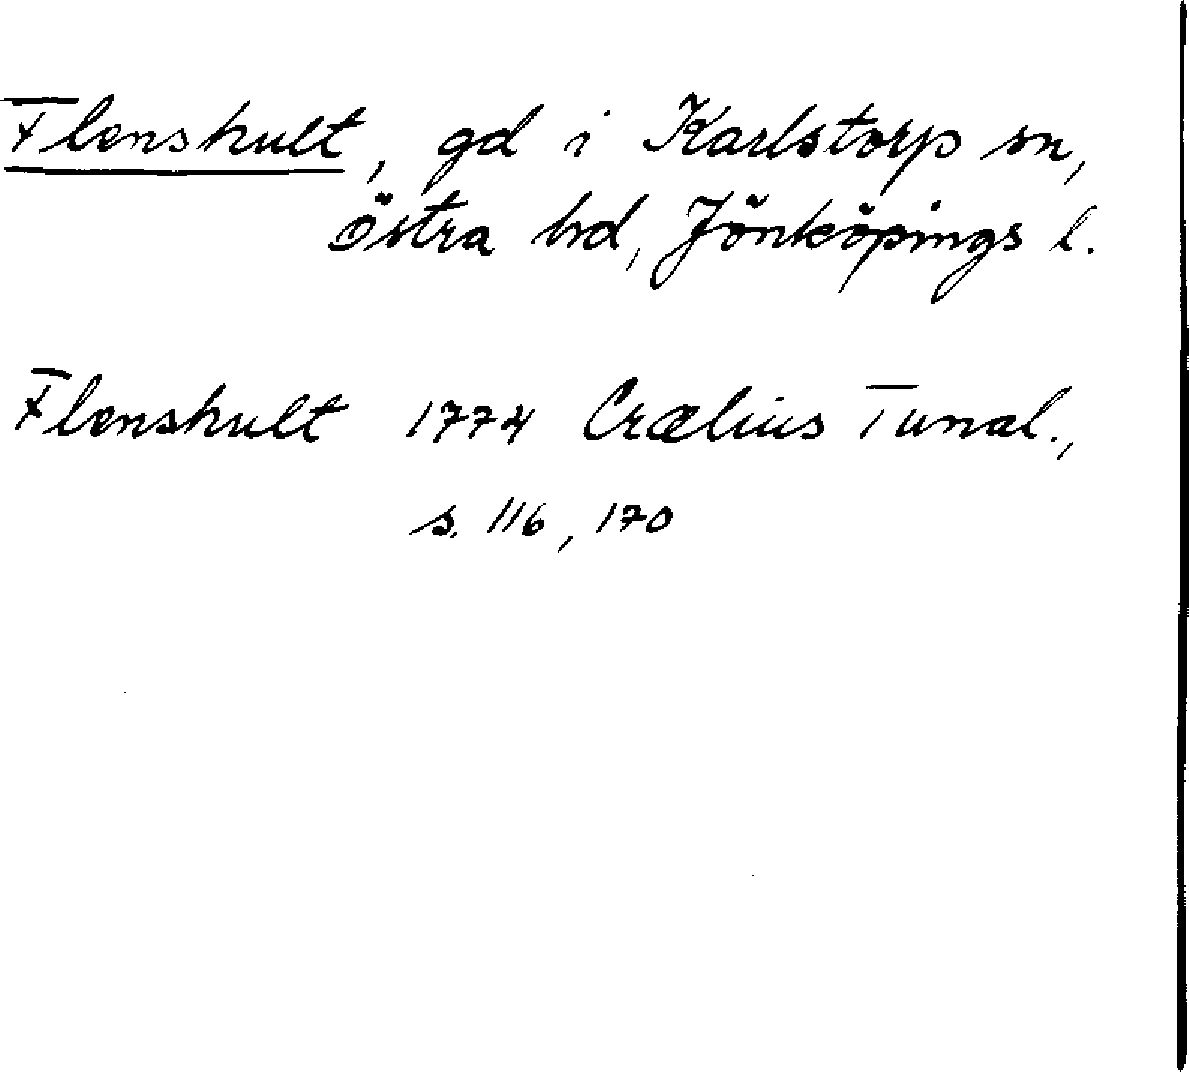 Flenshult, gd i Karlstorp sn,
Östra hd, Jönköpings l.
Flenshult 1774 Crælius Tunal.,
s. 116, 170